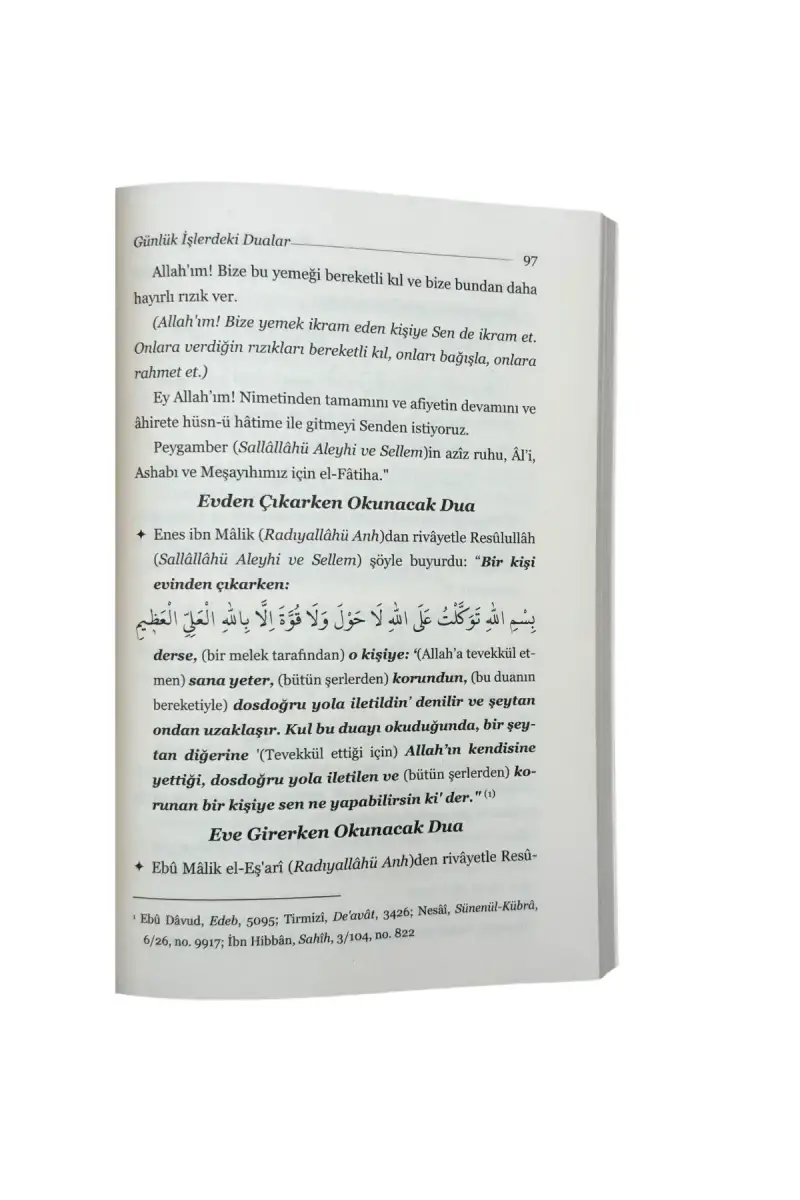 Günlük İşlerdeki Dualar 97
Allah'ım! Bize bu yemeği bereketli kıl ve bize bundan daha
hayırlı rızık ver.
(Allah'ım! Bize yemek ikram eden kişiye Sen de ikram et.
Onlara verdiğin rızıkları bereketli kıl, onları bağışla, onlara
rahmet et.)
Ey Allah'ım! Nimetinden tamamını ve afiyetin devamını ve
âhirete hüsn-ü hâtime ile gitmeyi Senden istiyoruz.
Peygamber (Sallâllâhü Aleyhi ve Sellem)in azîz ruhu, Âl'i,
Ashabı ve Meşayıhımız için el-Fâtiha."
Evden Çıkarken Okunacak Dua
✦ Enes ibn Mâlik (Radıyallâhü Anh)dan rivâyetle Resûlullâh
(Sallâllâhü Aleyhi ve Sellem) şöyle buyurdu: "Bir kişi
evinden çıkarken:
بِسْمِ اللّٰهِ تَوَكَّلْتُ عَلَى اللّٰهِ لَا حَوْلَ وَلَا قُوَّةَ اِلَّا بِاللّٰهِ الْعَلِيِّ الْعَظِيمِ
derse, (bir melek tarafından) o kişiye: '(Allah'a tevekkül et-
men) sana yeter, (bütün şerlerden) korundun, (bu duanın
bereketiyle) dosdoğru yola iletildin' denilir ve şeytan
ondan uzaklaşır. Kul bu duayı okuduğunda, bir şey-
tan diğerine '(Tevekkül ettiği için) Allah'ın kendisine
yettiği, dosdoğru yola iletilen ve (bütün şerlerden) ko-
runan bir kişiye sen ne yapabilirsin ki' der." (1)
Eve Girerken Okunacak Dua
✦ Ebû Mâlik el-Eş'arî (Radıyallâhü Anh)den rivâyetle Resû-
¹ Ebû Dâvud, Edeb, 5095; Tirmizî, De'avât, 3426; Nesâî, Sünenül-Kübrâ,
6/26, no. 9917; İbn Hibbân, Sahîh, 3/104, no. 822